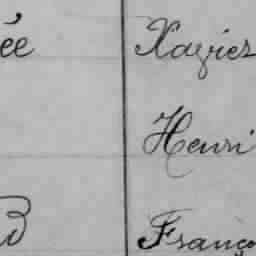 ée Xavier
Henri
B Franç